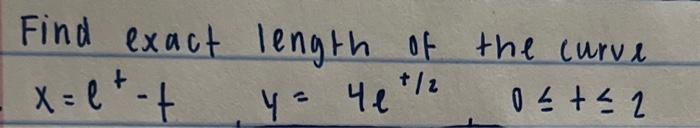 Find exact length of the curve
x = e^t - t, y = 4e^{t/2}, 0 ≤ t ≤ 2